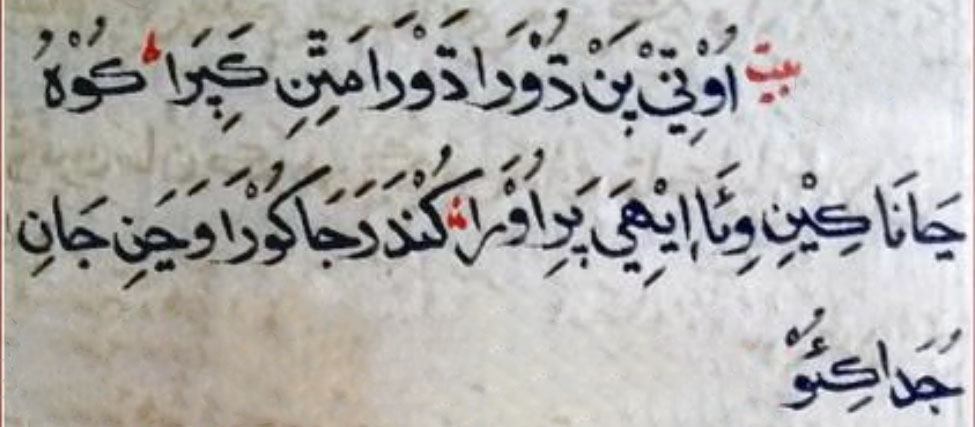 بيت اُوْنِيّ پَنْ دُوْرَا دَوْرَا مَتِّنِ كَپِرَا كُوْهُ
جَانَا كِيْنِ وِئَا اِيْهَيِ پَرِاوْرَا كُنْدَرَجَا كُوْرَا وَجَنِ جَانِ
جُدَا كِئُوْ